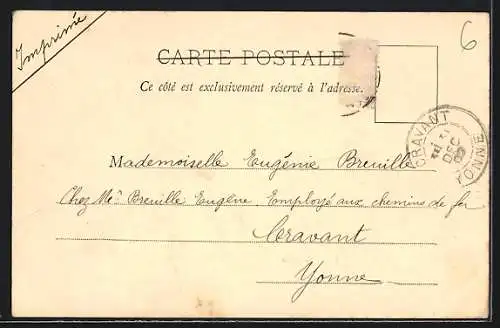 Imprimé
6
CARTE POSTALE
Ce côté est exclusivement réservé à l'adresse.
CRAVANT
DEC
YONNE
Mademoiselle Eugénie Breuillé
Chez Mr. Breuillé Eugène, Employé aux chemins de fer
Cravant
Yonne